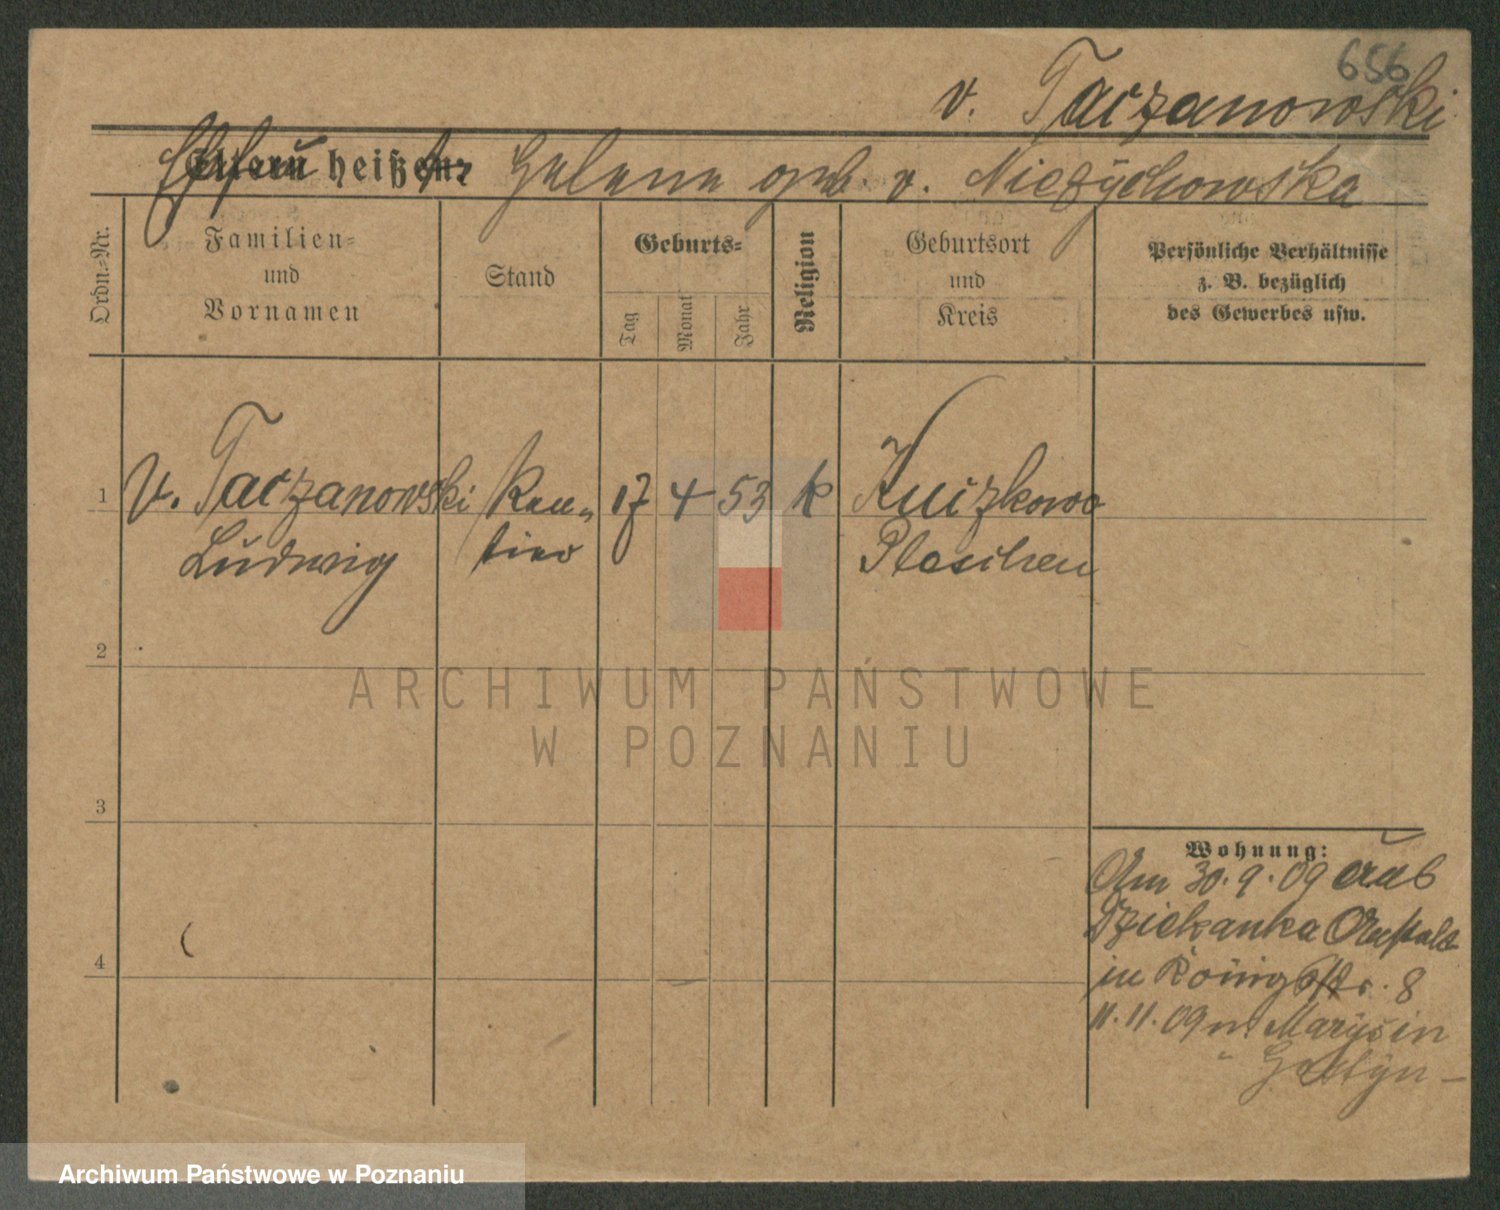 656
v. Taczanowski
Eltern heißen:
Ehefrau Helene geb. v. Niezychowska
Ordn.-Nr.
Familien-
und
Vornamen
Stand
Geburts-
Tag
Monat
Jahr
Religion
Geburtsort
und
Kreis
Persönliche Verhältnisse
z. B. bezüglich
des Gewerbes usw.
1 v. Taczanowski Ren- 17 4 53 k Kuczkowo
Ludwig tier Pleschen
2
3
4
Wohnung:
Am 30.9.09 aus
Dziekanka Anstalt
in Königstr. 8
11.11.09 n. Marysin
Gostyn
ARCHIWUM PAŃSTWOWE
W POZNANIU
Archiwum Państwowe w Poznaniu